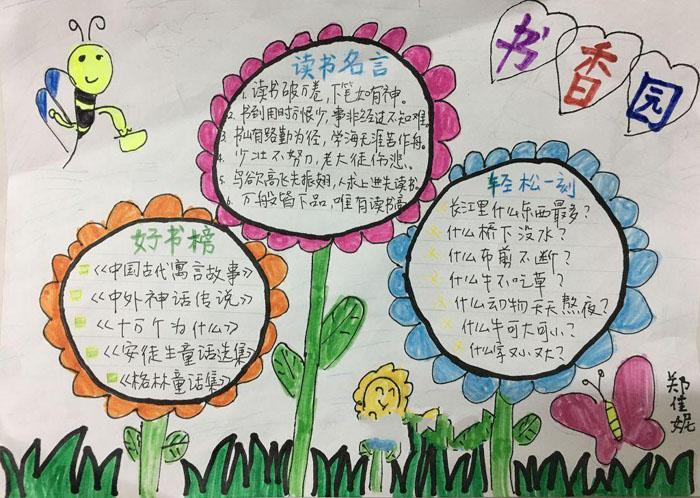 书香园
读书名言
1. 读书破万卷，下笔如有神。
2. 书到用时方恨少，事非经过不知难。
3. 书山有路勤为径，学海无涯苦作舟。
4. 少壮不努力，老大徒伤悲。
5. 鸟欲高飞先振翅，人求上进先读书。
6. 万般皆下品，唯有读书高
好书榜
《中国古代寓言故事》
《中外神话传说》
《十万个为什么》
《安徒生童话选集》
《格林童话集》
轻松一刻
长江里什么东西最多？
什么桥下没水？
什么布剪不断？
什么牛不吃草？
什么动物天天熬夜？
什么牛可大可小？
什么字又小又大？
郑佳妮